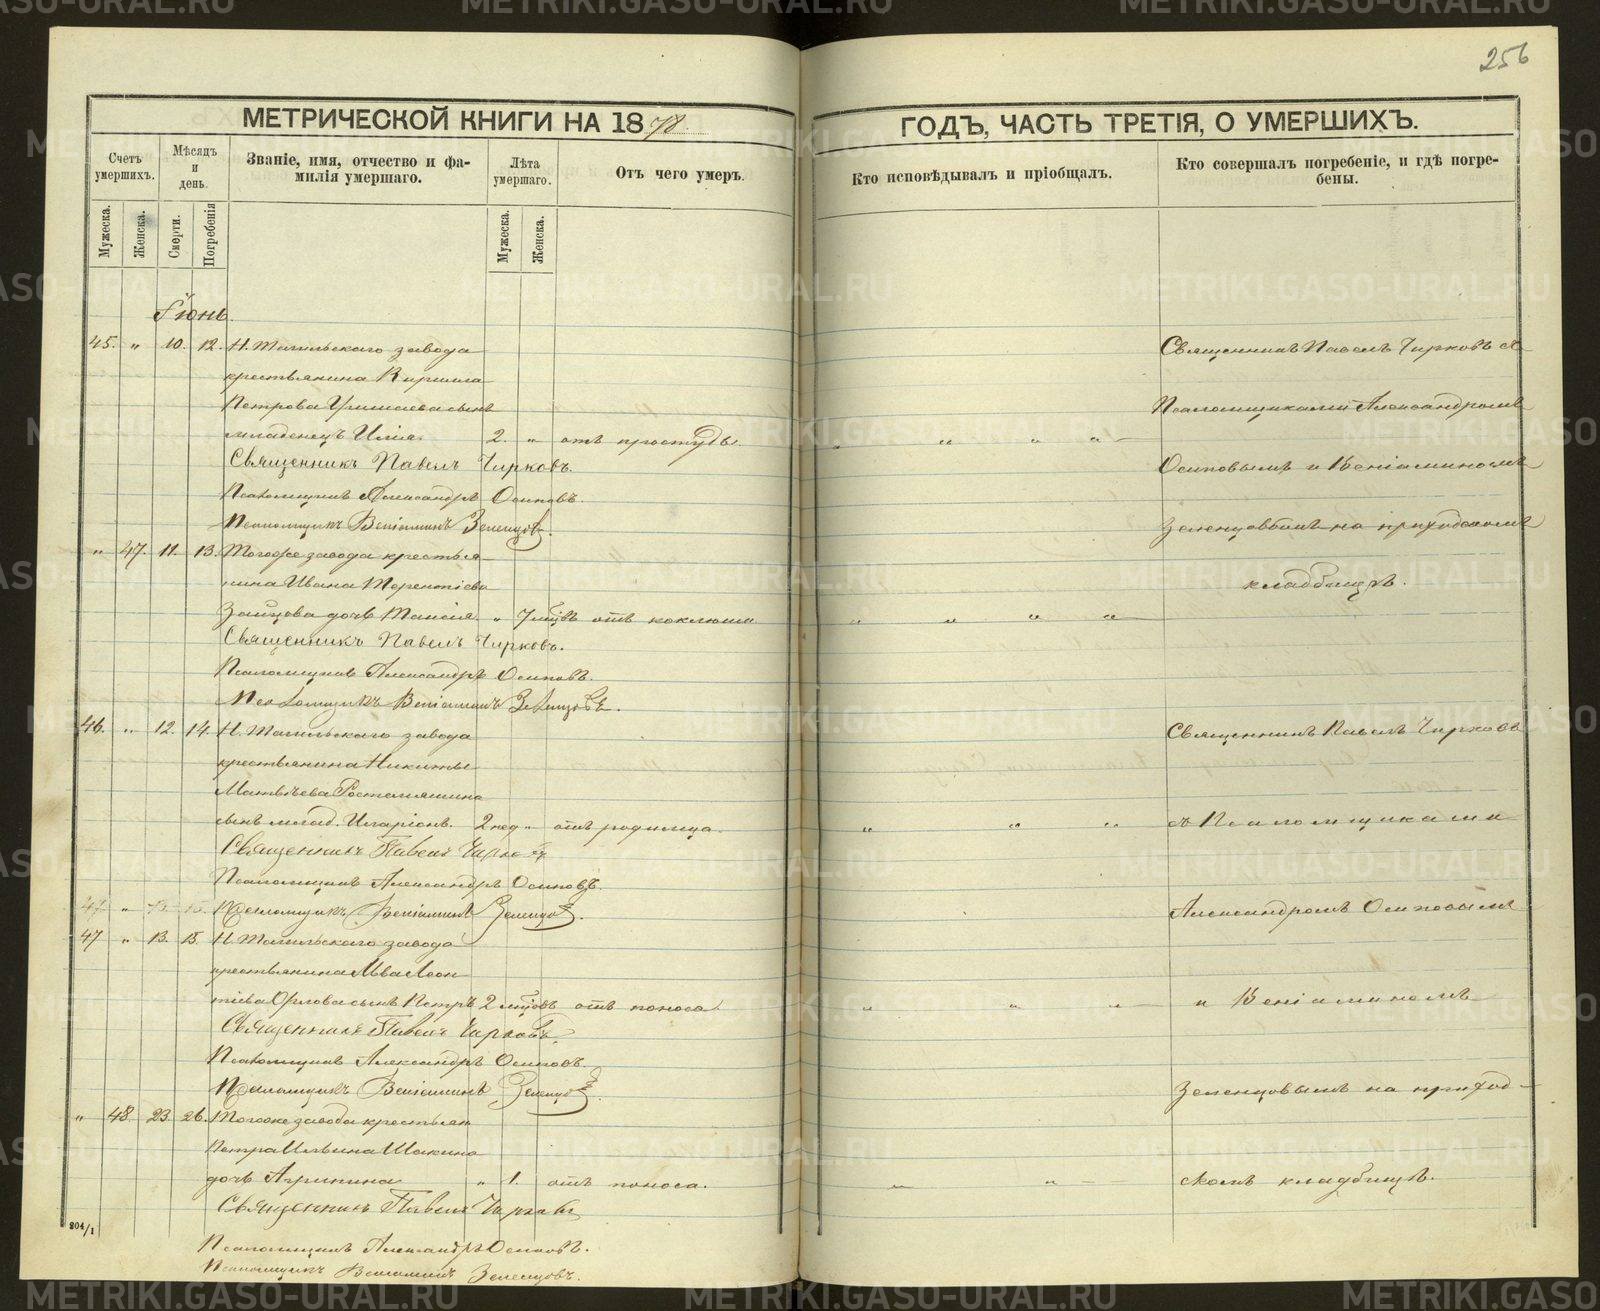 256
МЕТРИЧЕСКОЙ КНИГИ НА 1878.
ГОДЪ, ЧАСТЬ ТРЕТІЯ, О УМЕРШИХЪ.
Счетъ умершихъ.
Мѣсяцъ и день.
Званіе, имя, отчество и фамилія умершаго.
Лѣта умершаго.
Отъ чего умеръ.
Кто исповѣдывалъ и пріобщалъ.
Кто совершалъ погребеніе, и гдѣ погребены.
Мужеска.
Женска.
Смерти.
Погребенія
Мужеска.
Женска.
Іюнь.
45. " 10. 12. Н. Тагильскаго завода
крестьянина Кирила
Петрова сынъ
младенецъ Илія. 2. " отъ простуды.
Священникъ Павелъ Чирковъ.
Псаломщикъ Александръ Осиповъ.
Псаломщикъ Веніаминъ Зеленцовъ.
" 47. 11. 13. Тогоже завода крестья
нина Ивана Терентіева
Зайцова дочь Таисія. " 7 мѣсцв отъ коклюша
Священникъ Павелъ Чирковъ.
Псаломщикъ Александръ Осиповъ.
Псаломщикъ Веніаминъ Зеленцовъ.
46. " 12. 14. Н. Тагильскаго завода
крестьянина Никиты
Матвѣева
сынъ млад. Иларіонъ. 2 нед " отъ родимца.
Священникъ Павелъ Чирковъ
Псаломщикъ Александръ Осиповъ.
Псаломщикъ Веніаминъ Зеленцовъ.
47 " 13. 15. Н. Тагильскаго завода
крестьянина Льва Леон
тіева Орлова сынъ Петръ 2 мѣсцовъ отъ поноса.
Священникъ Павелъ Чирковъ.
Псаломщикъ Александръ Осиповъ.
Псаломщикъ Веніаминъ Зеленцовъ.
" 48. 23. 26. Тогоже завода крестьян
Петра Ильина
дочь Агрипина " 1. отъ поноса.
Священникъ Павелъ Чирковъ
Псаломщикъ Александръ Осиповъ.
Псаломщикъ Веніаминъ Зеленцовъ.
Священникъ Павелъ Чирковъ съ
Псаломщиками Александромъ
Осиповымъ и Веніаминомъ
Зеленцовымъ на приходскомъ
кладбищѣ.
Священникъ Павелъ Чирковъ
съ Псаломщиками
Александромъ Осиповымъ
и Веніаминомъ
Зеленцовымъ на приход-
скомъ кладбищѣ.
804/1
METRIKI.GASO-URAL.RU